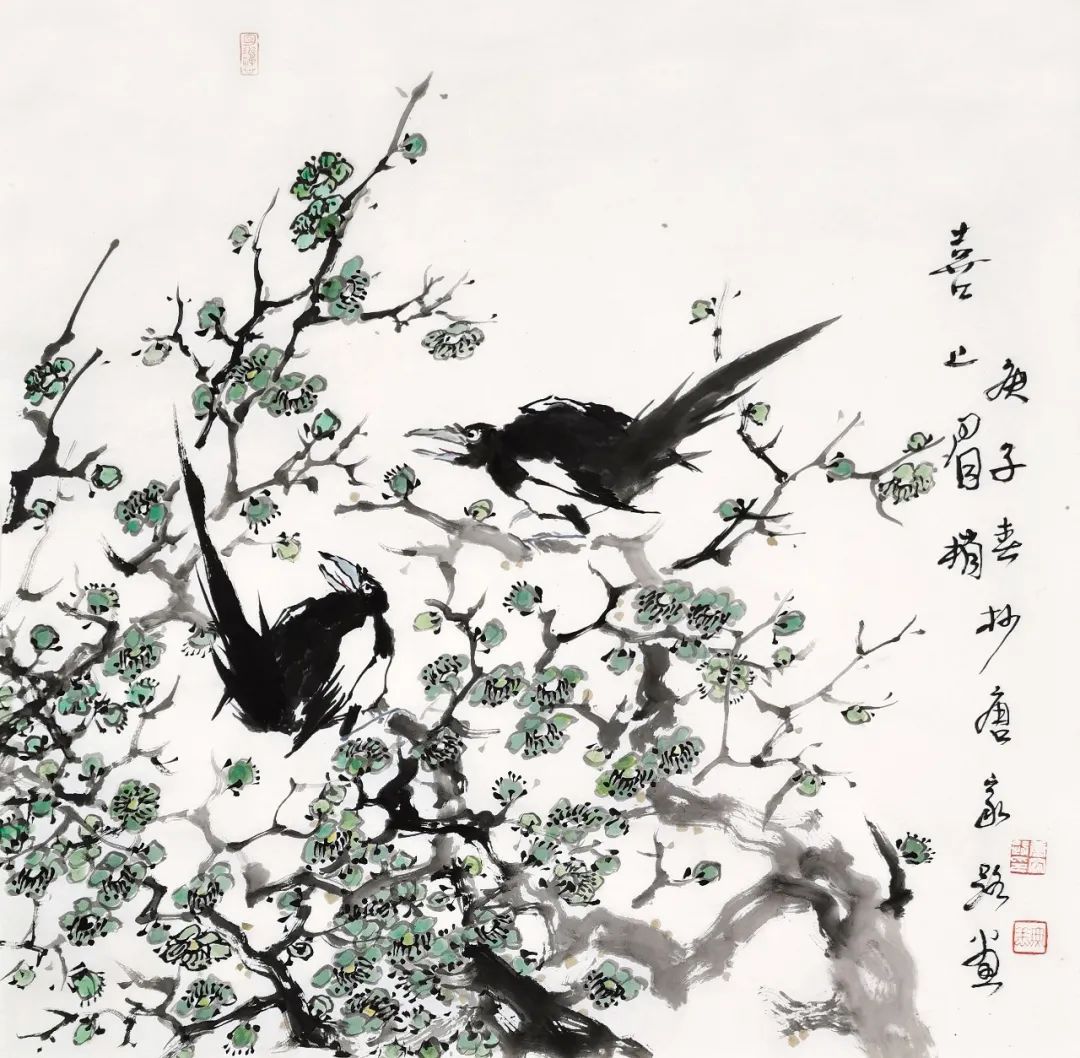 喜上眉梢
庚子春抄唐家路画